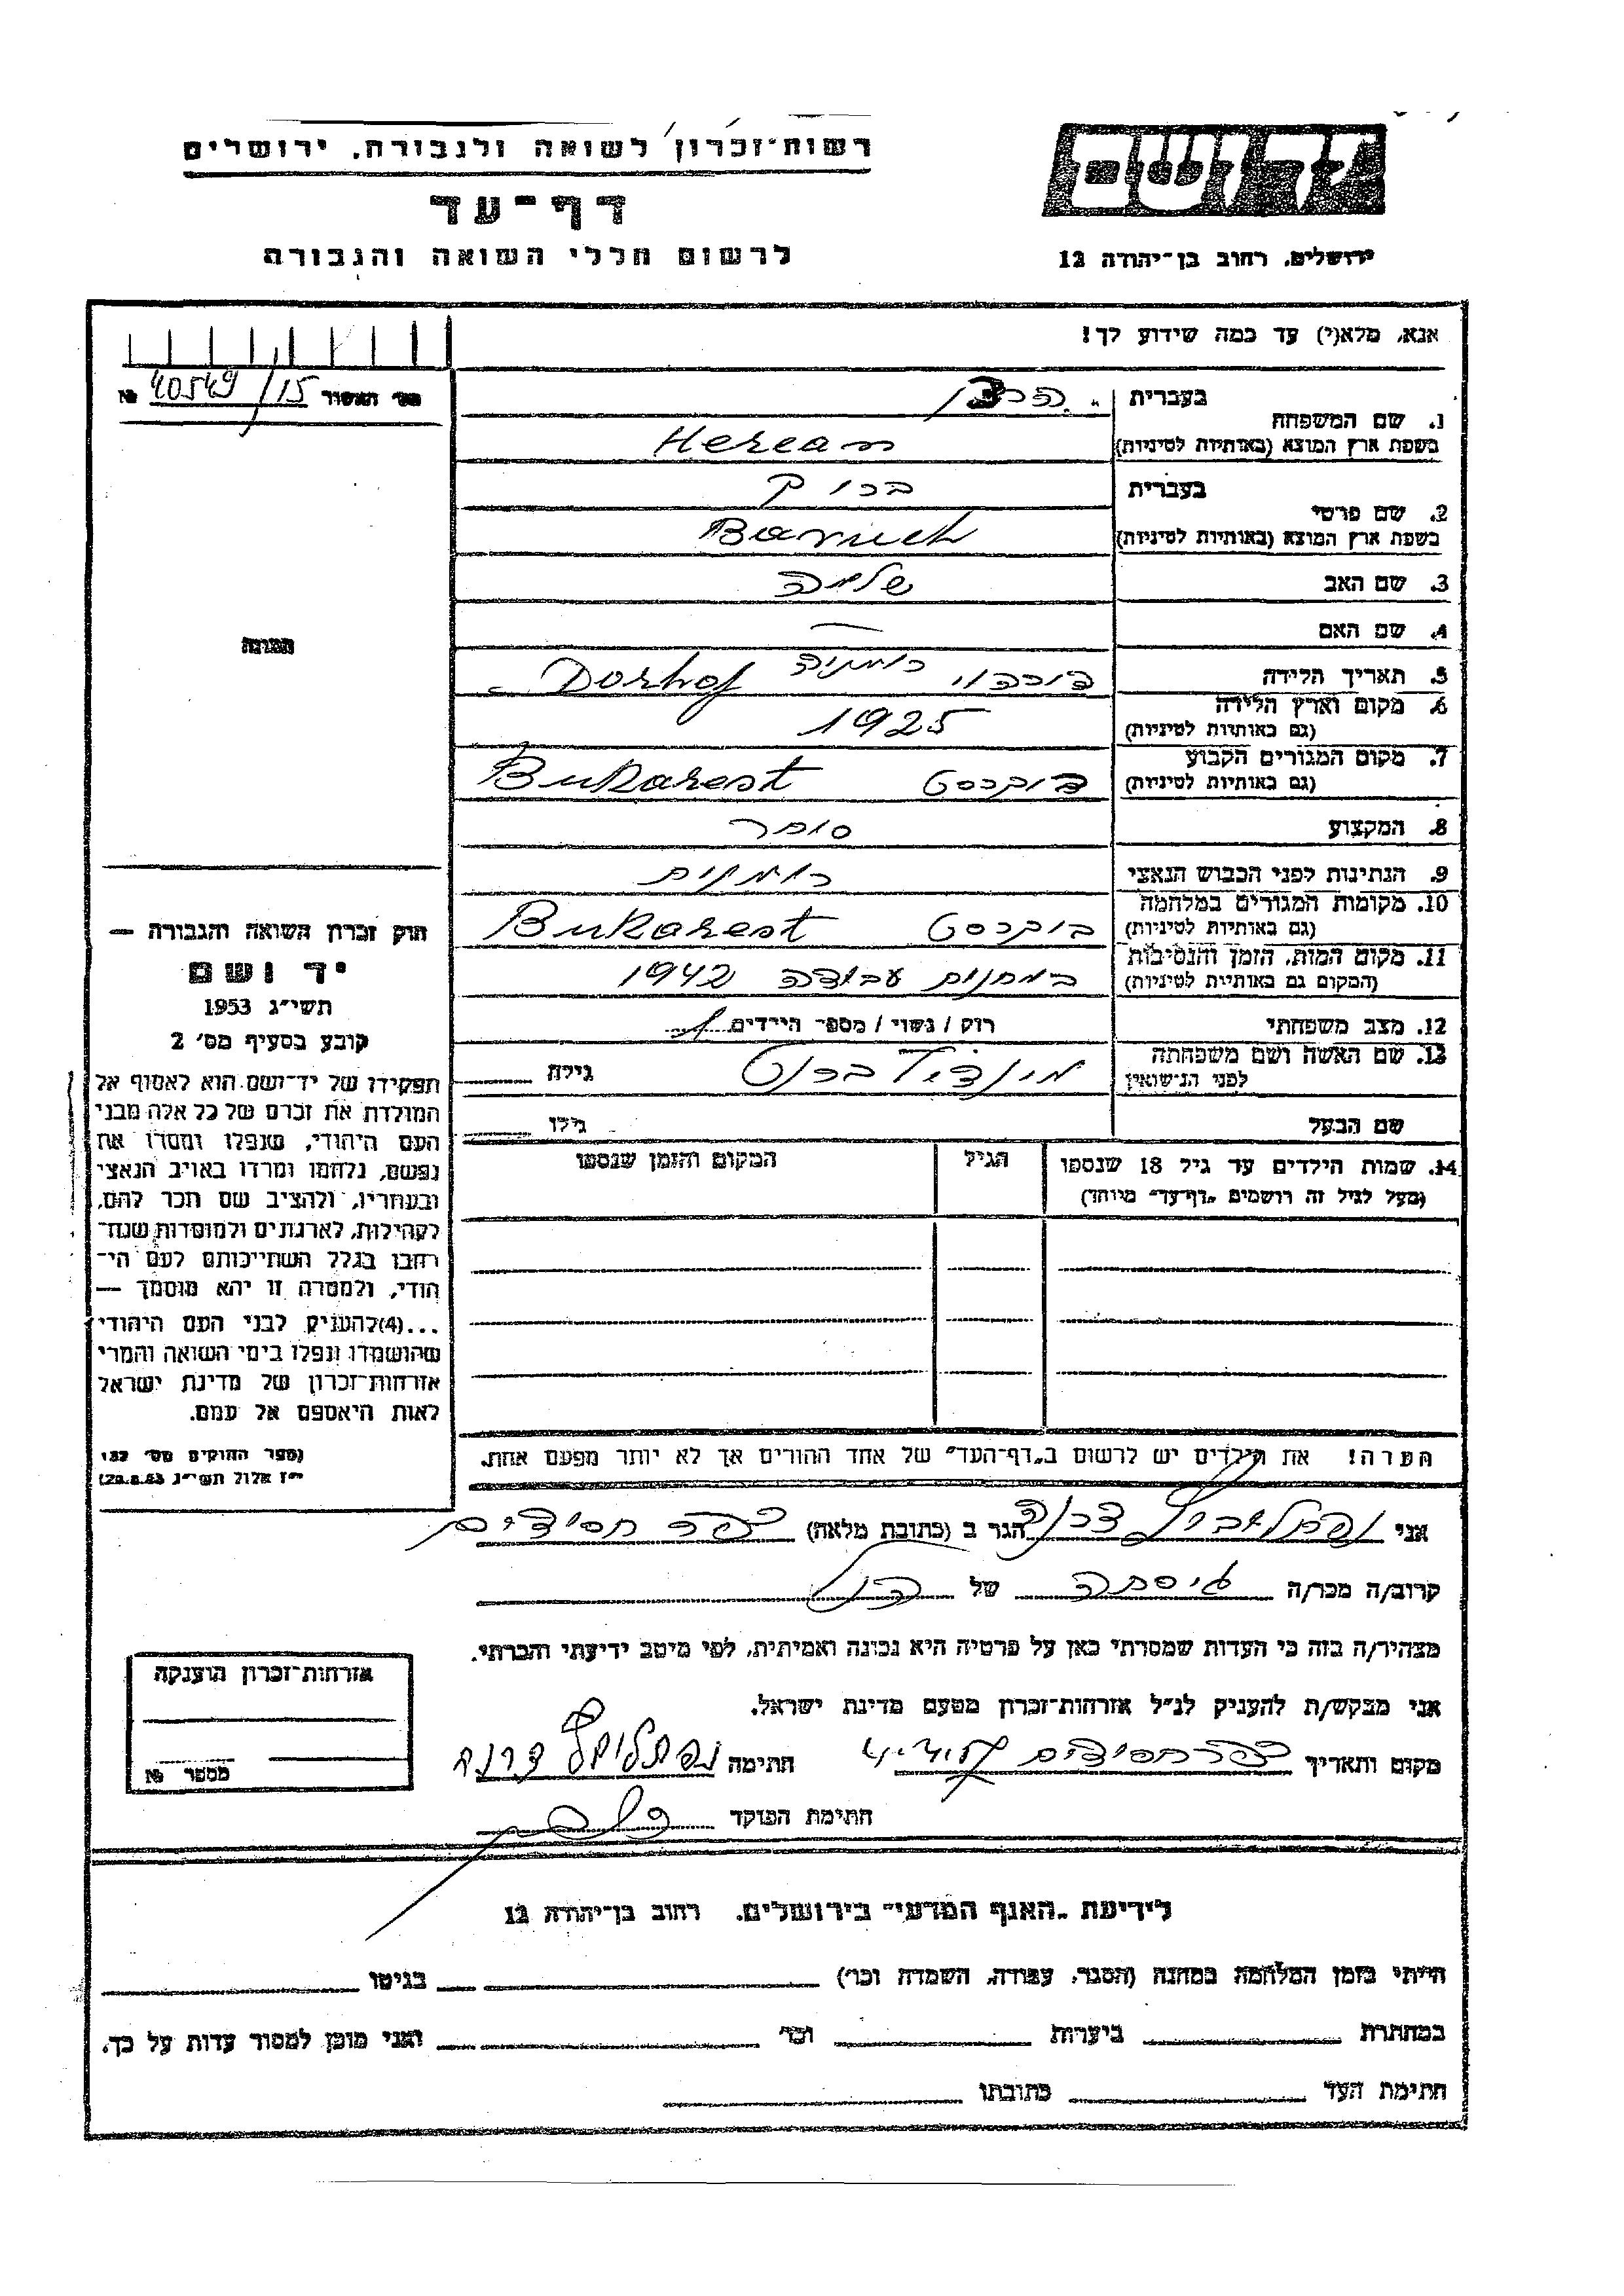 רשות־זכרון לשואה ולגבורה, ירושלים
דף־עד
לרשום חללי השואה והגבורה
יד ושם
ירושלים, רחוב בן־יהודה 12
אנא, מלא(י) עד כמה שידוע לך!
מס' האשור 40549/15 №
1. שם המשפחה
בעברית
בשפת ארץ המוצא (באותיות לטיניות) Herean
2. שם פרטי
בעברית ברוך
בשפת ארץ המוצא (באותיות לטיניות) Baruch
3. שם האב שלמה
4. שם האם —
5. תאריך הלידה
רומניה Dorhof
6. מקום וארץ הלידה
(גם באותיות לטיניות) 1925
7. מקום המגורים הקבוע
(גם באותיות לטיניות) בוקרסט Bukarest
8. המקצוע סופר
9. הנתינות לפני הכבוש הנאצי רומנית
10. מקומות המגורים במלחמה
(גם באותיות לטיניות) בוקרסט Bukarest
11. מקום המות, הזמן והנסיבות
(המקום גם באותיות לטיניות) במחנות עבודה 1942
12. מצב משפחתי רווק / נשוי / מספר הילדים
13. שם האשה ושם משפחתה
לפני הנישואין גילה
שם הבעל גילו
14. שמות הילדים עד גיל 18 שנספו
(מעל לגיל זה רושמים "דף־עד" מיוחד)
הגיל
המקום והזמן שנספו
הערה! את הילדים יש לרשום ב"דף־העד" של אחד ההורים אך לא יותר מפעם אחת.
התמונה
חוק זכרון השואה והגבורה —
יד ושם
תשי"ג 1953
קובע בסעיף מס' 2
תפקידו של יד־ושם הוא לאסוף אל
המולדת את זכרם של כל אלה מבני
העם היהודי, שנפלו ומסרו את
נפשם, נלחמו ומרדו באויב הנאצי
ובעוזריו, ולהציב שם וזכר להם,
לקהילות, לארגונים ולמוסדות שנח־
רבו בגלל השתייכותם לעם הי־
הודי, ולמטרה זו יהא מוסמך —
...(4) להעניק לבני העם היהודי
שהושמדו ונפלו בימי השואה והמרי
אזרחות־זכרון של מדינת ישראל
לאות היאספם אל עמם.
(ספר החוקים מס' 132
י"ז אלול תשי"ג 28.8.53)
אני הגר ב (כתובת מלאה) כפר חסידים
קרוב/ה מכר/ה גיסתה של הנ"ל
מצהיר/ה בזה כי העדות שמסרתי כאן על פרטיה היא נכונה ואמיתית, לפי מיטב ידיעתי והכרתי.
אני מבקש/ת להעניק לנ"ל אזרחות־זכרון מטעם מדינת ישראל.
מקום ותאריך כפר חסידים חתימה
חתימת הפוקד
אזרחות־זכרון הוענקה
מספר №
לידיעת "האגף המדעי" בירושלים, רחוב בן־יהודה 12
הייתי בזמן המלחמה במחנה (הסגר, עבודה, השמדה וכו') בגיטו
במחתרת ביערות וכו' ואני מוכן למסור עדות על כך.
חתימת העד כתובתו